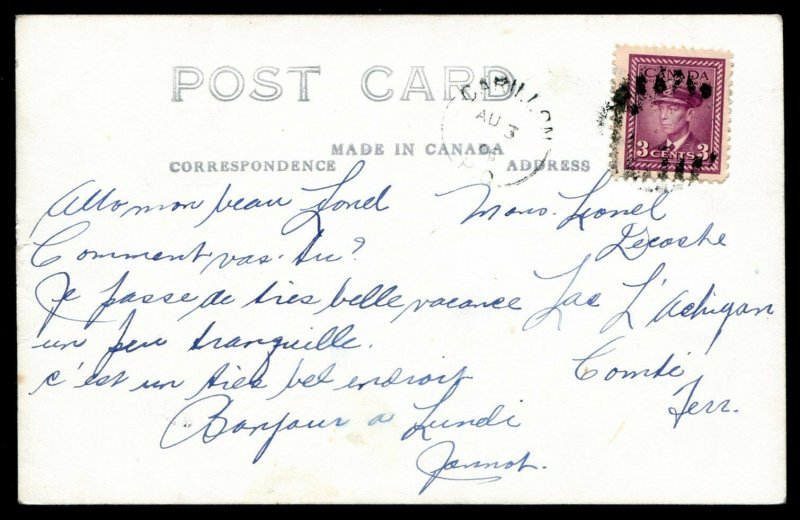 POST CARD
CARILLON
AU 3
CANADA
3 CENTS 3
MADE IN CANADA
CORRESPONDENCE
ADDRESS
Allo mon beau
Comment vas-tu?
Je passe de très belle vacance
un peu tranquille.
c'est un très bel endroit
Bonjour a Lundi
Mons. Lionel
Lecoste
Lac L'Achigan
Comté
Terr.